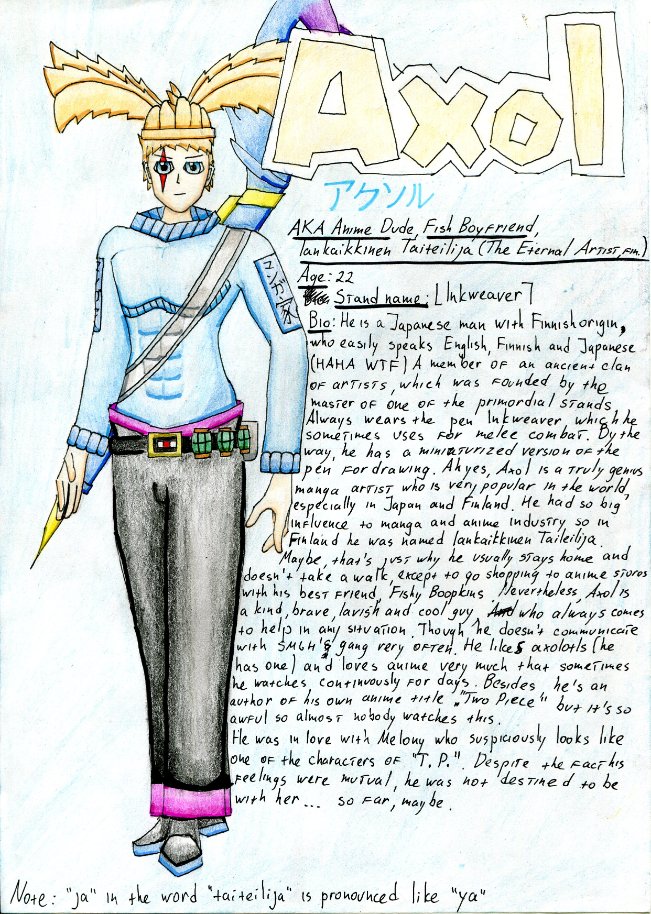 Axol
アクソル
AKA Anime Dude, Fish Boyfriend,
Iankaikkinen Taiteilija (The Eternal Artist, fin.)
Age: 22
Stand name: [Inkweaver]
Bio: He is a Japanese man with Finnish origin,
who easily speaks English, Finnish and Japanese
(HAHA WTF) A member of an ancient clan
of artists, which was founded by the
master of one of the primordial stands
Always wears the pen Inkweaver which he
sometimes uses for melee combat. By the
way, he has a miniaturized version of the
pen for drawing. Ah yes, Axol is a truly genius
manga artist who is very popular in the world,
especially in Japan and Finland. He had so big
influence to manga and anime industry so in
Finland he was named Iankaikkinen Taiteilija.
Maybe, that's just why he usually stays home and
doesn't take a walk, except to go shopping to anime stores
with his best friend, Fishy Boopkins. Nevertheless, Axol is
a kind, brave, lavish and cool guy, who always comes
to help in any situation. Though he doesn't communicate
with SMG4's gang very often. He likes axolotls (he
has one) and loves anime very much that sometimes
he watches continuously for days. Besides he's an
author of his own anime title „Two Piece" but it's so
awful so almost nobody watches this.
He was in love with Melony who suspiciously looks like
one of the characters of "T.P.". Despite the fact his
feelings were mutual, he was not destined to be
with her... so far, maybe.
Note: "ja" in the word "taiteilija" is pronounced like "ya"